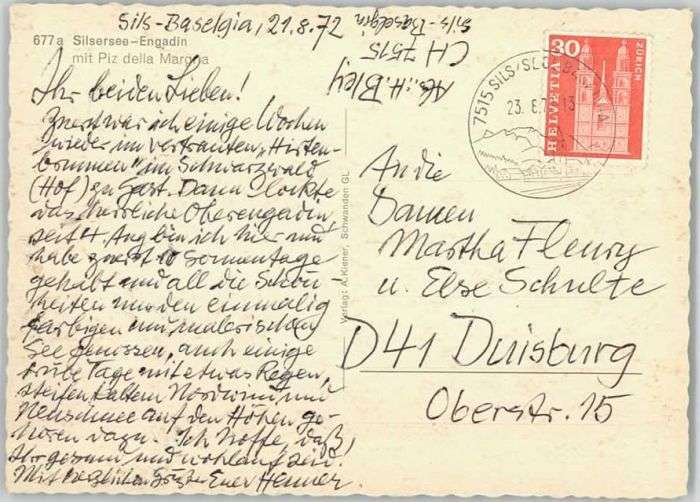 Sils-Baselgia, 21.8.72
677a Silsersee-Engadin
mit Piz della Margna
Ihr beiden Lieben!
Zuerst war ich einige Wochen
wieder im vertrauten "Hirten-
brunnen" im Schwarzwald
(Hof) zu Gast. Dann lockte
das herrliche Oberengadin,
seit 4. Aug bin ich hier und
habe zuerst 10 Sonnentage
gehabt und all die Schön-
heiten um den einmalig
farbigen und malerischen
See genossen, auch einige
trübe Tage mit etwas Regen,
steifen kaltem Nordwind, und
Neuschnee auf den Höhen ge-
hören dazu. Ich hoffe, daß
Ihr gesund und wohlauf seid.
Mit herzlichen Grüßen Euer Henner.
Abs.: H. Bley
CH 7515
Sils-Baselgia
Verlag: A. Kiener, Schwanden GL
7515 SILS/SEGL BASELGIA
23. 8. 72 13
HELVETIA 30
ZÜRICH
An die
Damen
Martha Fleury
u. Else Schulte
D41 Duisburg
Oberstr. 15